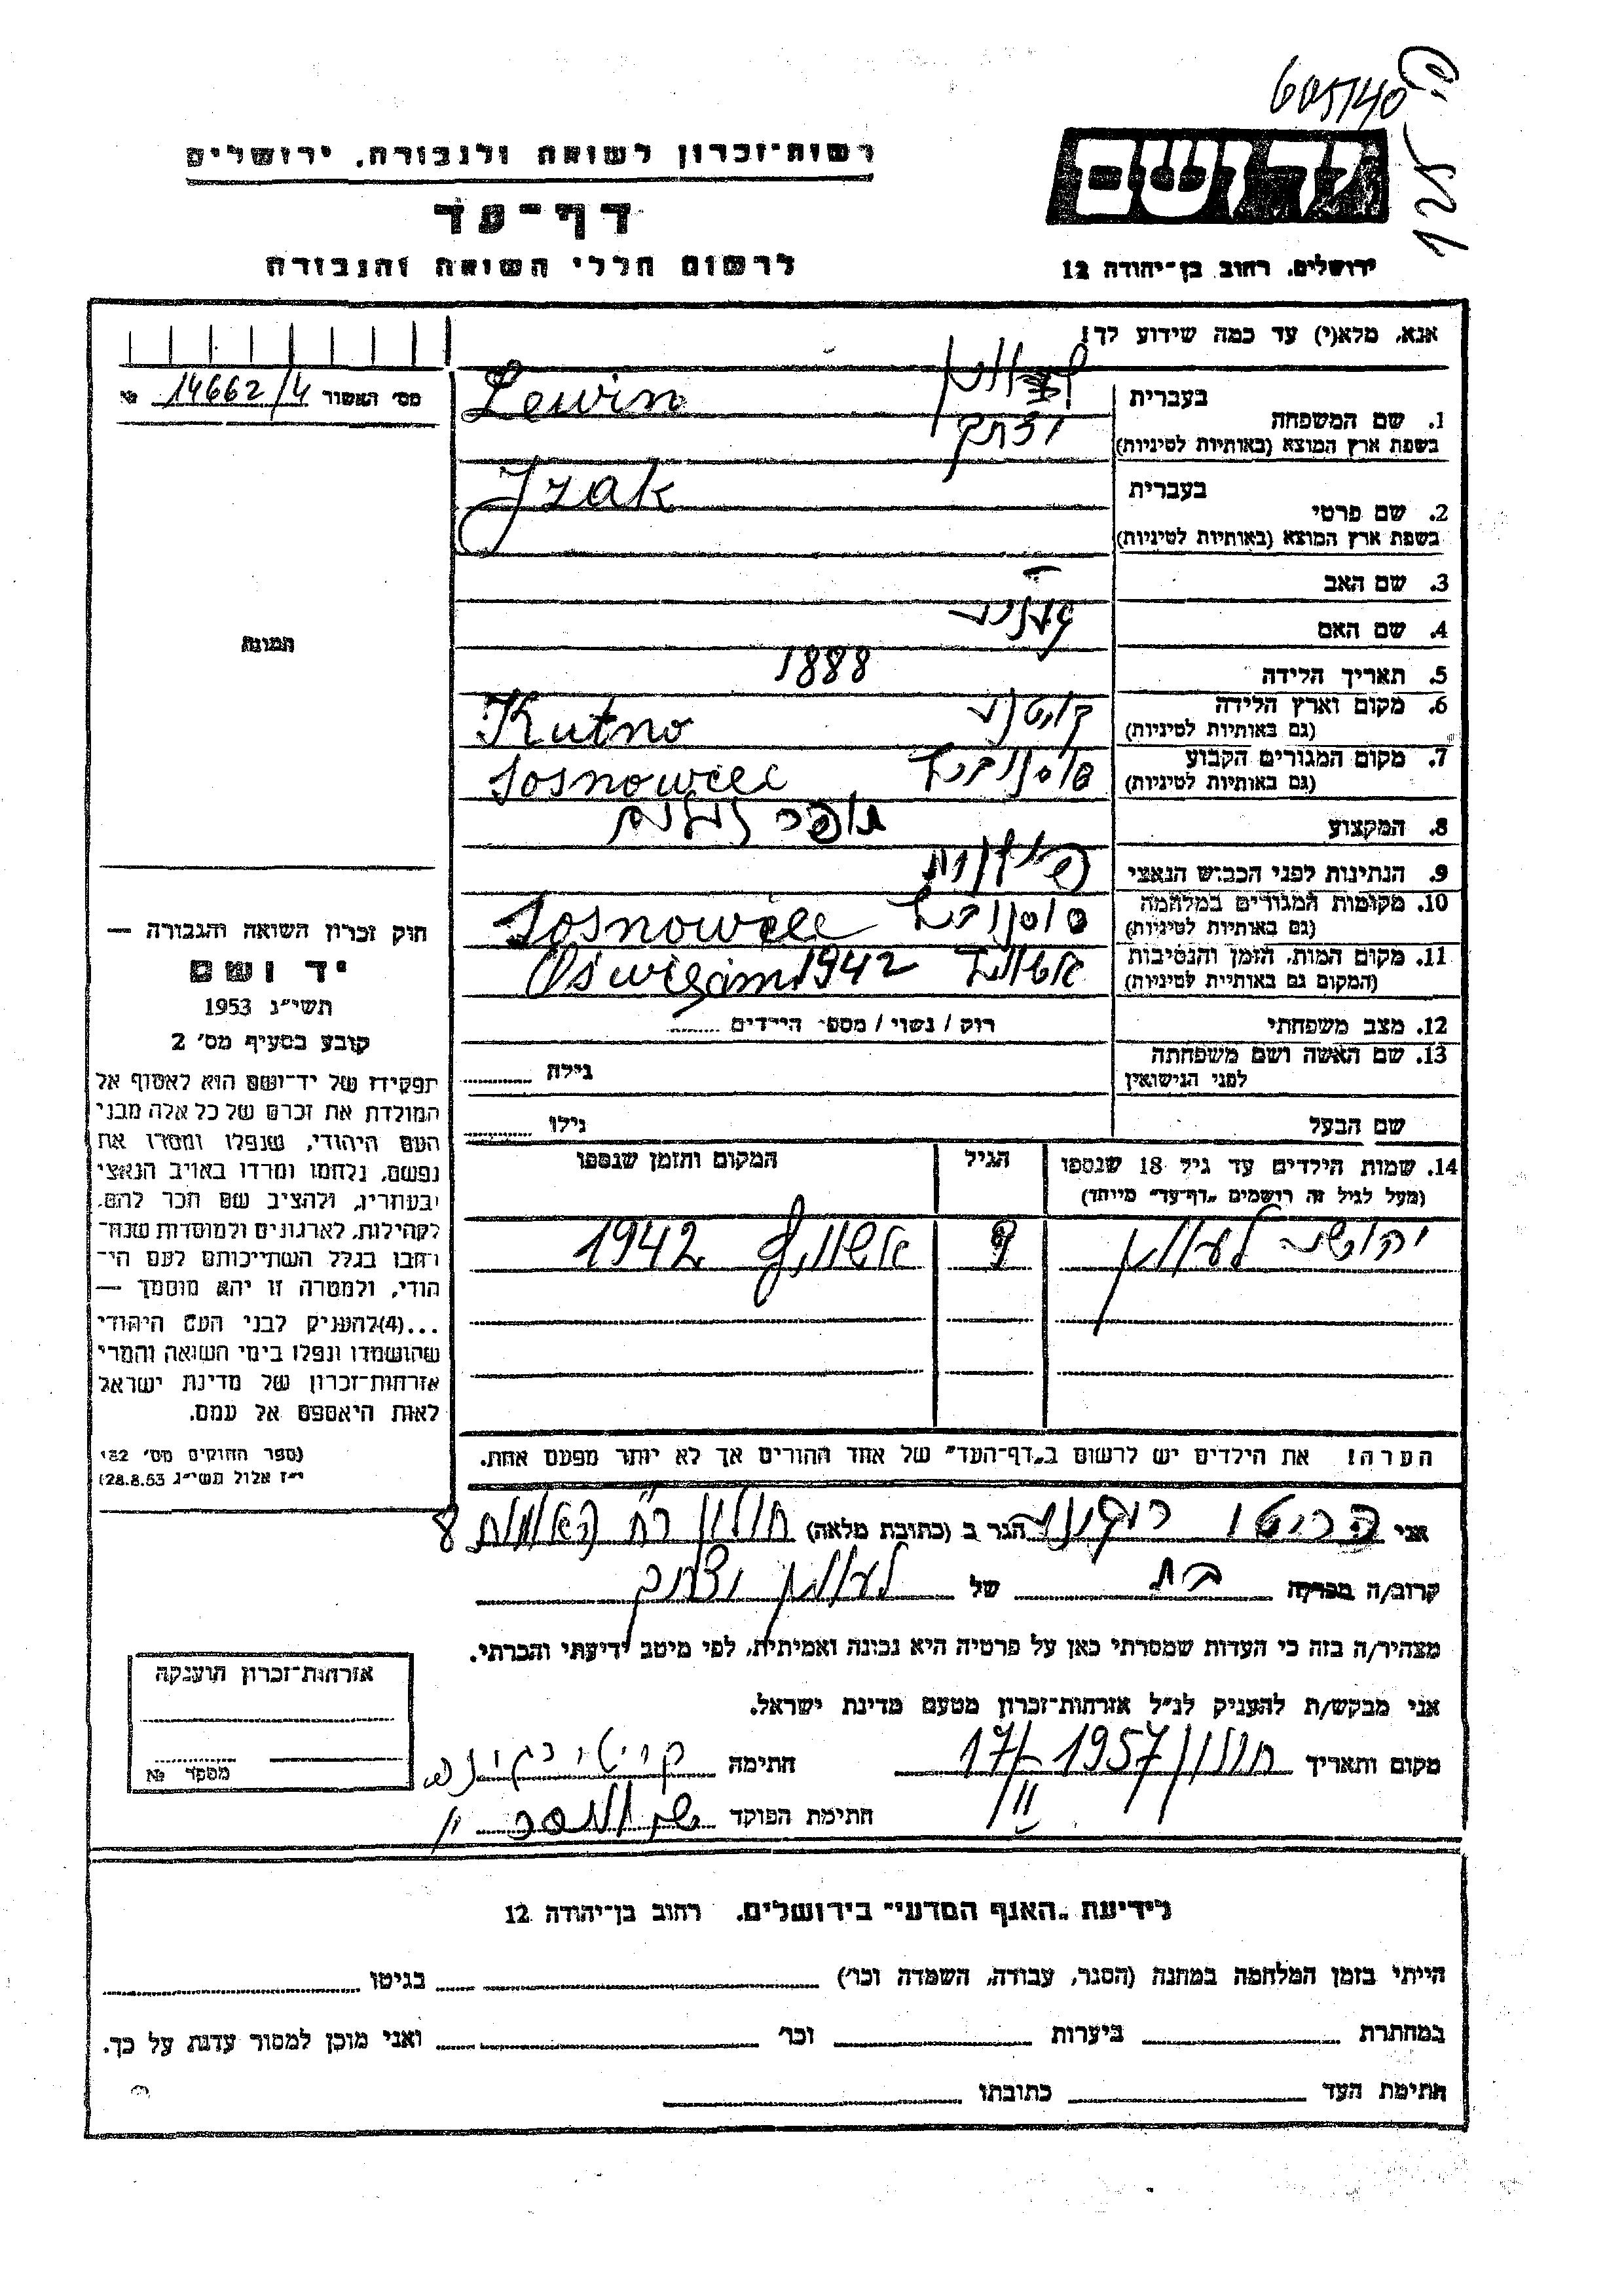 605/40
125
רשות־זכרון לשואה ולגבורה, ירושלים
דף־עד
לרשום חללי השואה והגבורה
יד ושם
ירושלים, רחוב בן־יהודה 12
אנא, מלא(י) עד כמה שידוע לך!
מס׳ האשור 14662/4 №
1. שם המשפחה
בעברית
בשפת ארץ המוצא (באותיות לטיניות) Lewin
יצחק
2. שם פרטי
בעברית
בשפת ארץ המוצא (באותיות לטיניות) Izak
3. שם האב
4. שם האם
5. תאריך הלידה 1888
6. מקום וארץ הלידה
(גם באותיות לטיניות) קוטנו Kutno
7. מקום המגורים הקבוע
(גם באותיות לטיניות) סוסנוביץ Sosnowiec
8. המקצוע
9. הנתינות לפני הכבוש הנאצי פולנית
10. מקומות המגורים במלחמה
(גם באותיות לטיניות) סוסנוביץ Sosnowiec
11. מקום המות, הזמן והנסיבות
(המקום גם באותיות לטיניות) 1942 Oświęcim
12. מצב משפחתי רוק / נשוי / מספר הילדים
13. שם האשה ושם משפחתה
לפני הנישואין גילה
שם הבעל גילו
14. שמות הילדים עד גיל 18 שנספו
(מעל לגיל זה רושמים „דף־עד” מיוחד)
הגיל
המקום והזמן שנספו
לעווין 9 1942
הערה! את הילדים יש לרשום ב„דף־העד” של אחד ההורים אך לא יותר מפעם אחת.
התמונה
חוק זכרון השואה והגבורה —
יד ושם
תשי״ג 1953
קובע בסעיף מס׳ 2
תפקידו של יד־ושם הוא לאסוף אל
המולדת את זכרם של כל אלה מבני
העם היהודי, שנפלו ומסרו את
נפשם, נלחמו ומרדו באויב הנאצי
ובעוזריו, ולהציב שם וזכר להם,
לקהילות, לארגונים ולמוסדות שנח־
רבו בגלל השתייכותם לעם הי־
הודי, ולמטרה זו יהא מוסמך —
...(4)להעניק לבני העם היהודי
שהושמדו ונפלו בימי השואה והמרי
אזרחות־זכרון של מדינת ישראל
לאות היאספם אל עמם.
(ספר החוקים מס׳ 132
י״ז אלול תשי״ג 28.8.53)
אני הגר ב (כתובת מלאה) חולון 8
קרוב/ה מכרה בת של לעווין יצחק
מצהיר/ה בזה כי העדות שמסרתי כאן על פרטיה היא נכונה ואמיתית, לפי מיטב ידיעתי והכרתי.
אני מבקש/ת להעניק לנ״ל אזרחות־זכרון מטעם מדינת ישראל.
מקום ותאריך חולון 17/ 1957 חתימה
חתימת הפוקד
אזרחות־זכרון הוענקה
מספר №
לידיעת „האגף המדעי” בירושלים, רחוב בן־יהודה 12
הייתי בזמן המלחמה במחנה (הסגר, עבודה, השמדה וכו׳) בגיטו
במחתרת ביערות וכו׳ ואני מוכן למסור עדות על כך.
חתימת העד כתובתו